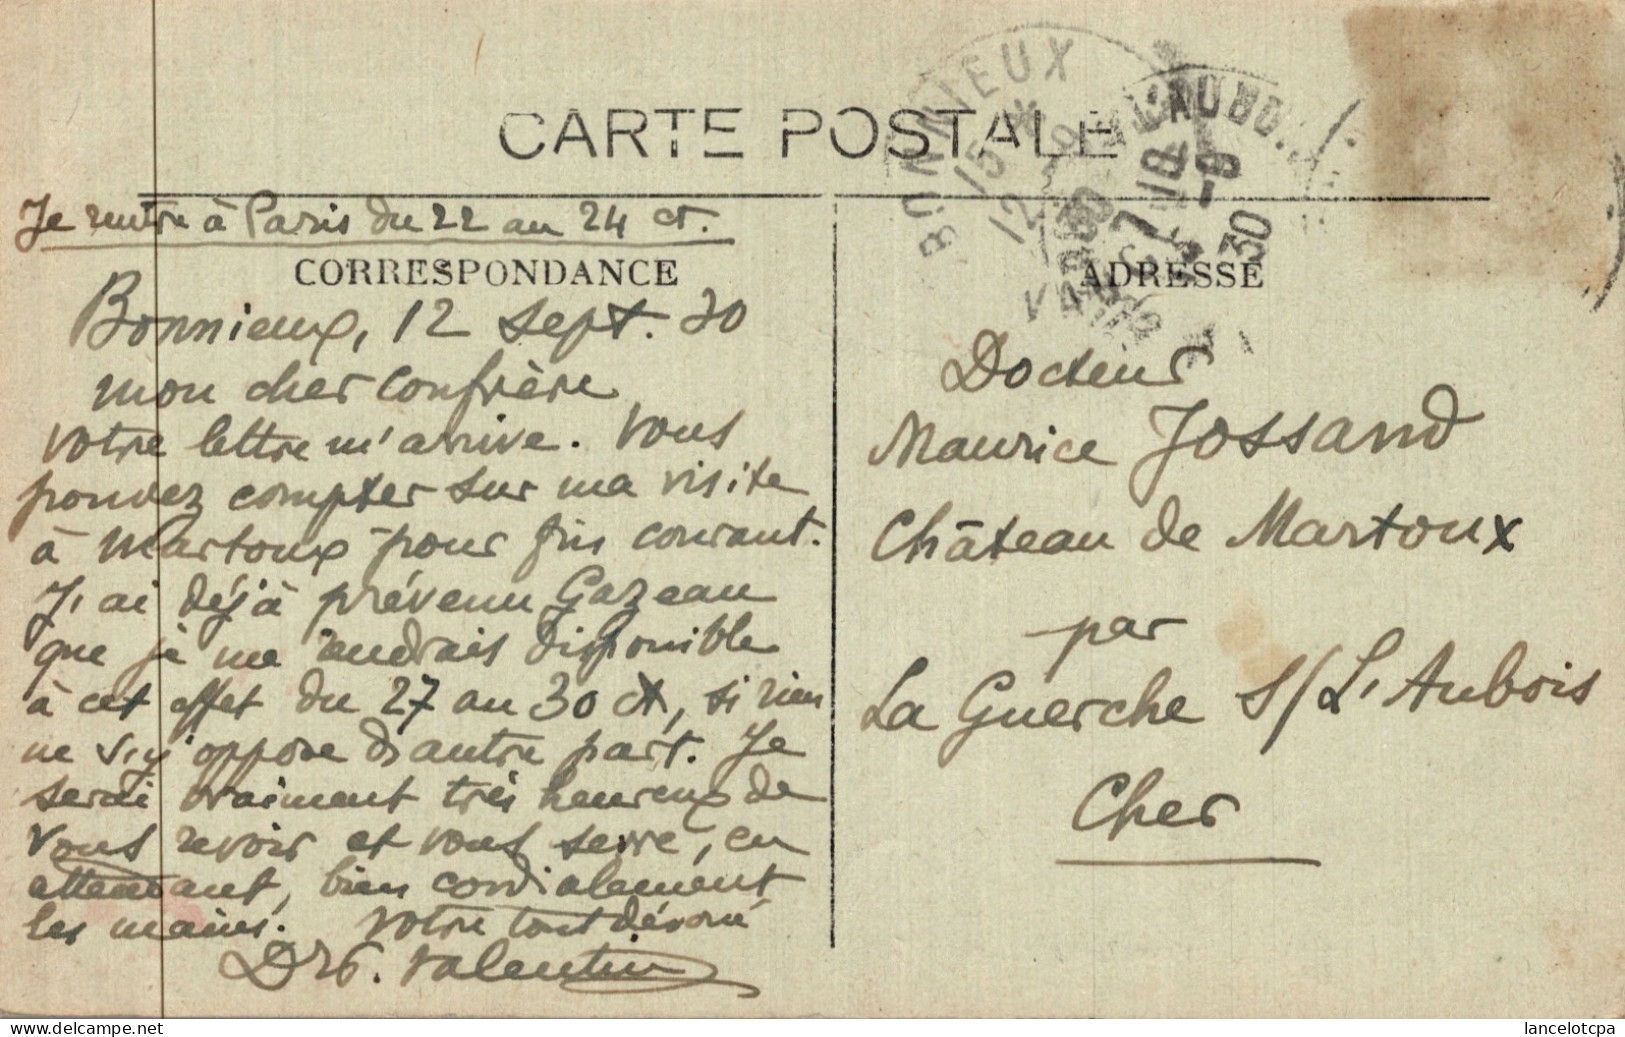 CARTE POSTALE
Je rentre à Paris du 22 au 24 ct.
CORRESPONDANCE
Bonnieux, 12 sept. 30
mon cher confrère
votre lettre m'arrive. Vous
pouvez compter sur ma visite
à Martoux pour fin courant.
J'ai déjà prévenu Gazeau
que je me rendrais disponible
à cet effet du 27 au 30 ct, si rien
ne s'y oppose d'autre part. Je
serai vraiment très heureux de
vous revoir et vous serre, en
attendant, bien cordialement
les mains. Votre tout dévoué
Dr G. Valentin
BONNIEUX
15 *
12
L'AUBO
18
30
ADRESSE
Docteur
Maurice Jossand
Château de Martoux
par
La Guerche s/ L'Aubois
Cher
www.delcampe.net
lancelotcpa